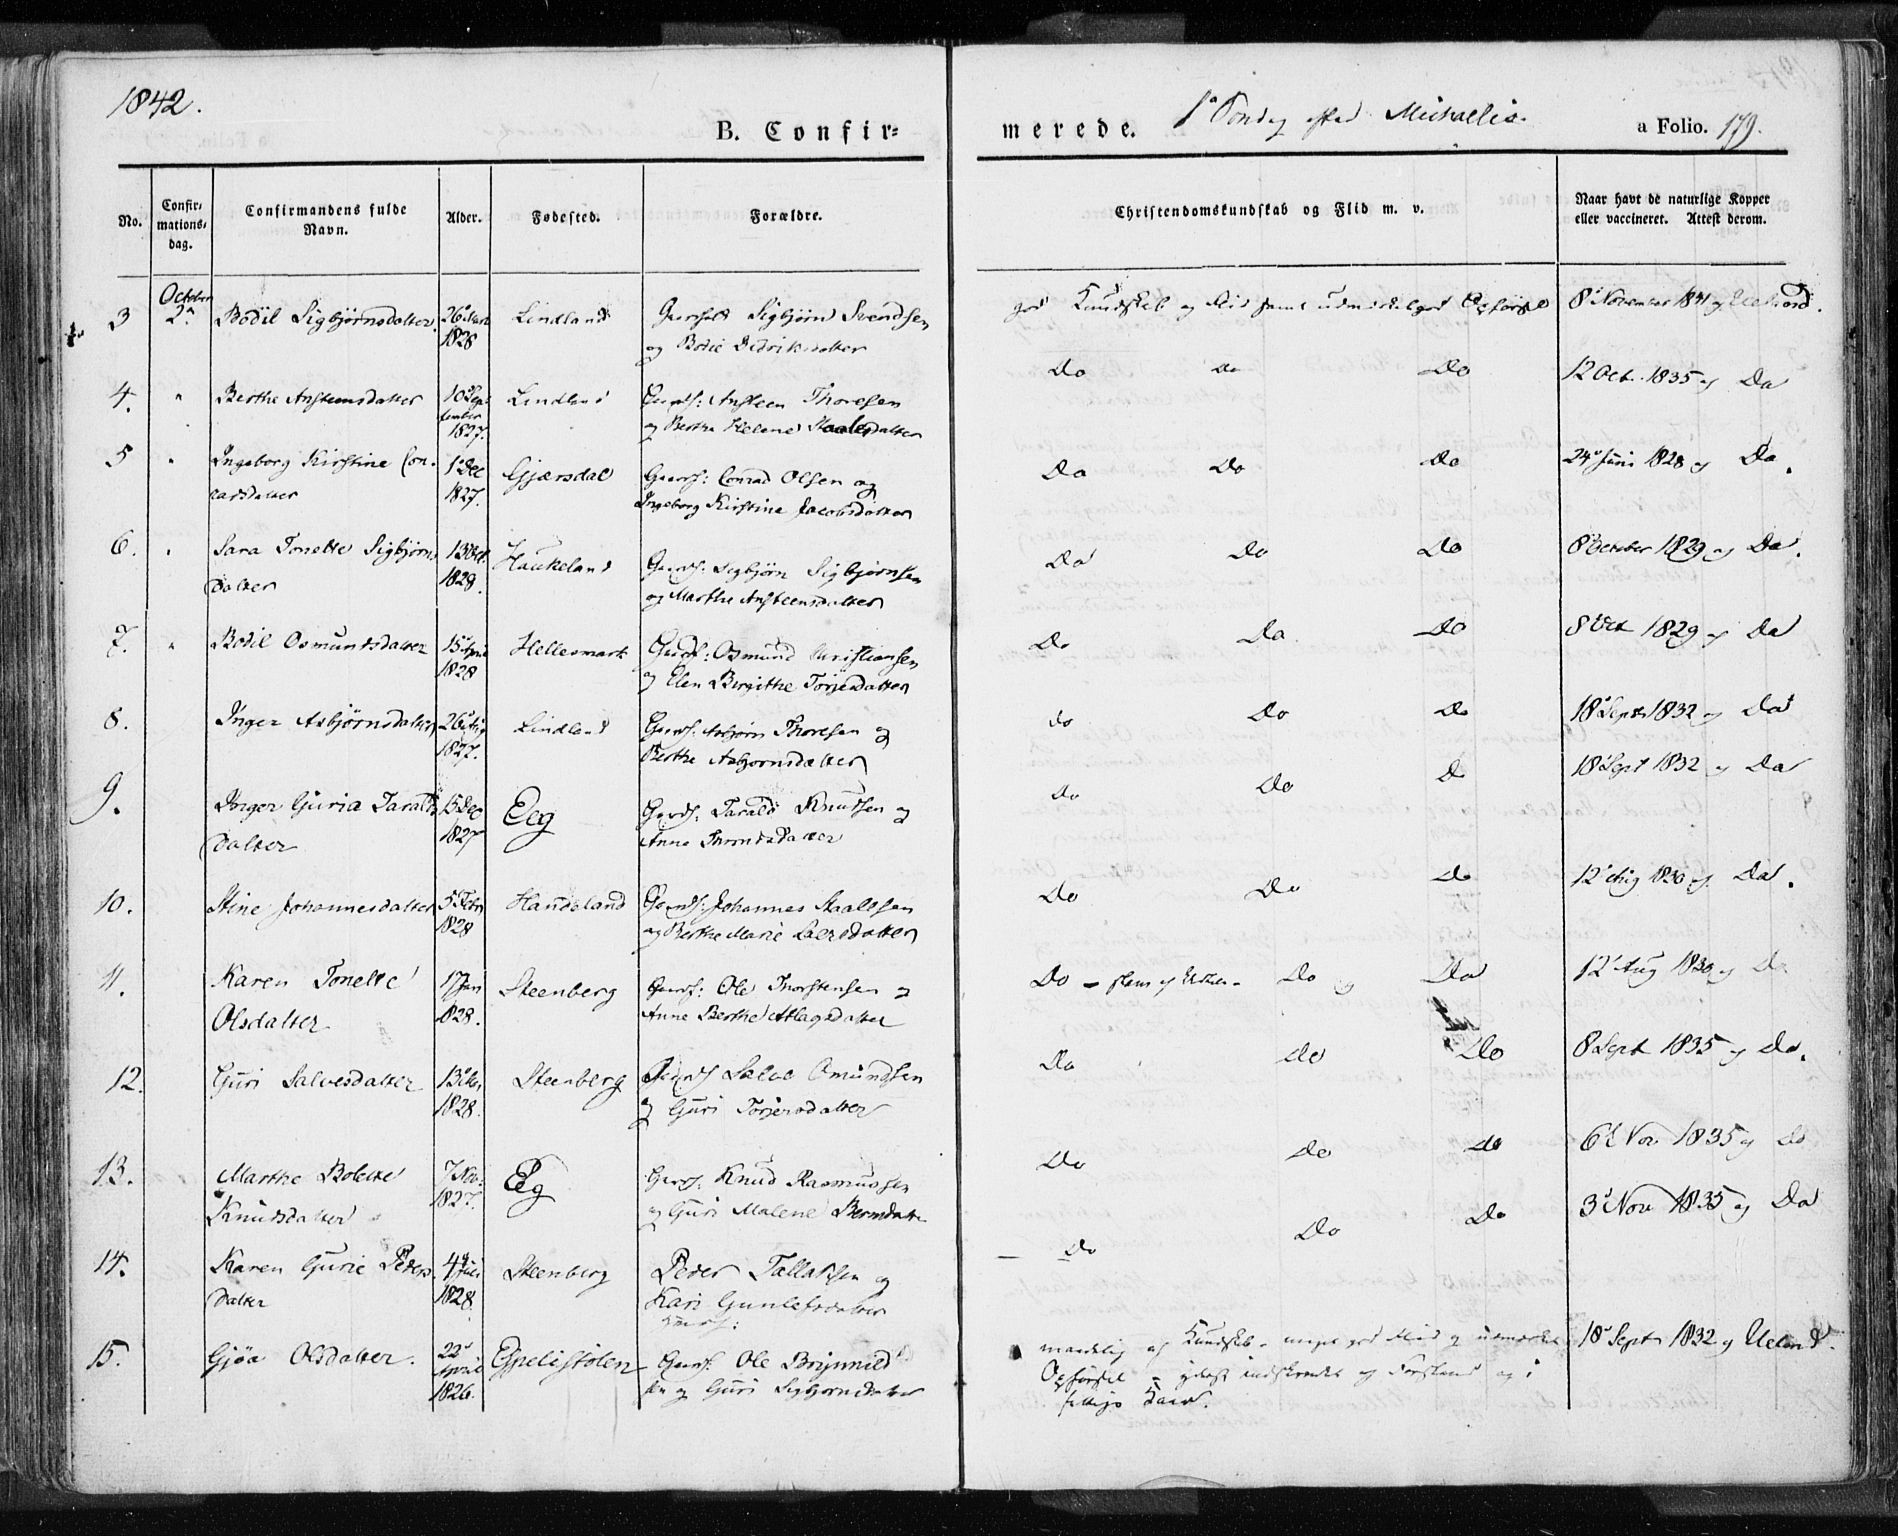 1842.
B. Confir=
merede. 1ª Søndag efter Michaelis.
a Folio. 179.
No.
Confir=
mations=
dag.
Confirmandens fulde
Navn.
Alder.
Fødested.
Forældre.
Christendomskundskab og Flid m. v.
Naar havt de naturlige Kopper
eller vaccineret. Attest derom.
October
3 2ª Bodil Sigbjørnsdatter 26 Lindland Sigbjørn Svendsen
1828 og Bodil Didriksdatter
god Kundskab og Flid samt udmærket god Opførsel 8 November 1841 og
4. " Berthe Anstensdatter 10 Sep- Lindland Ansteen Thoresen
tember og Berthe Helene Staalesdatter
1827.
Do Do Do 12 Oct. 1835 og Do
5 " Ingeborg Kirstine Con- 1 Dec Gjærsdal Gaardf: Conrad Olsen og
radsdatter 1827. Ingeborg Kirstine Jacobsdatter
Do Do Do 24 Juni 1828 og Do.
6. " Sara Tonette Sigbjørns 13 Oct Haukeland Gaardf: Sigbjørn Sigbjørnsen
datter 1828. og Marthe Ansteensdatter
Do Do Do 8 October 1829 og Do.
7. " Bodil Osmundsdatter 15 April Hellesmark Gaardf: Osmund Christiansen
1828 og Elen Birgithe Torjesdatter
Do Do Do 8 Oct 1829 og Do
8. Inger Asbjørnsdatter 26 Lindland Gaardf: Asbjørn Thoresen og
1827. Berthe Asbjornsdatter
do Do Do 18 Sept 1832 og Do
9. Inger Guria Taralds 15 Dec Eeg Gaardf: Tarald Knudsen og
datter 1827 Anne Throndsdatter
do Do Do 18 Sept 1832 og Do
10. Stine Johannesdatter 5 Febr Haudeland Gaardf: Johannes Staalesen
1828 og Berthe Marie Larsdatter
Do Do Do 12 Aug 1830 og Do.
11. Karen Tonette 17 Jan Steenberg Gaardf: Ole Thorstensen og
Olsdatter 1828. Anne Berthe Atlagsdatter
Do - - Do og Do 12 Aug 1830 og Do
12. Guri Salvesdatter 13 Steenberg Gaardf Salve Omundsen
1828. og Guri Torjersdatter
Do do Do 8 Sept 1835 og Do.
13. Marthe Bolette 7 Nov: Eeg Gaardf. Knud Rasmudsen
Knudsdatter 1827. og Guri Malene
Do Do do 6 Nov 1835 og Do
14. Karen Gurie Peders 4 Juli Steenberg Peder Tallaksen og
datter 1828. Kari Gunlefsdatter
Do Do Do 3 Nov 1835 og Do
15. Gjøa Olsdatter. 22 Espelistølen Gaardf. Ole Brynnild
April sen og Guri Sigbjornsdatter
1826.
maadelig af Kundskab - meget god Flid og udmærket 18 Sept 1832 og Ueland.
Opførsel - indskrænket og Forstand og i
Kaar.